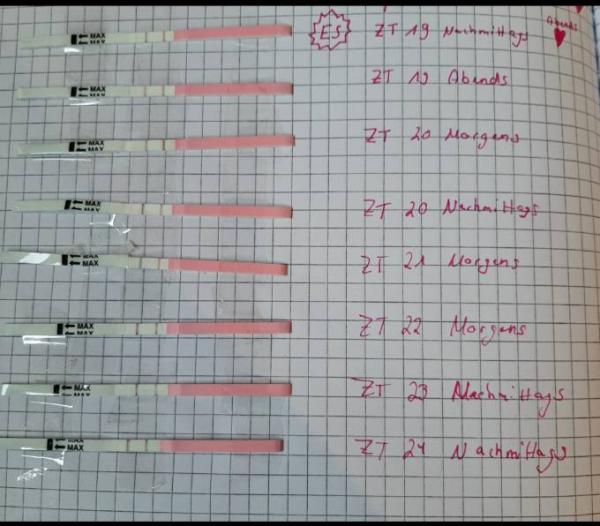 MAX
MAX
ES
ZT 19 Nachmittags
Abends
MAX
MAX
ZT 19 Abends
MAX
MAX
ZT 20 Morgens
MAX
MAX
ZT 20 Nachmittags
MAX
MAX
ZT 21 Morgens
MAX
MAX
ZT 22 Morgens
MAX
MAX
ZT 23 Nachmittags
MAX
MAX
ZT 24 Nachmittags